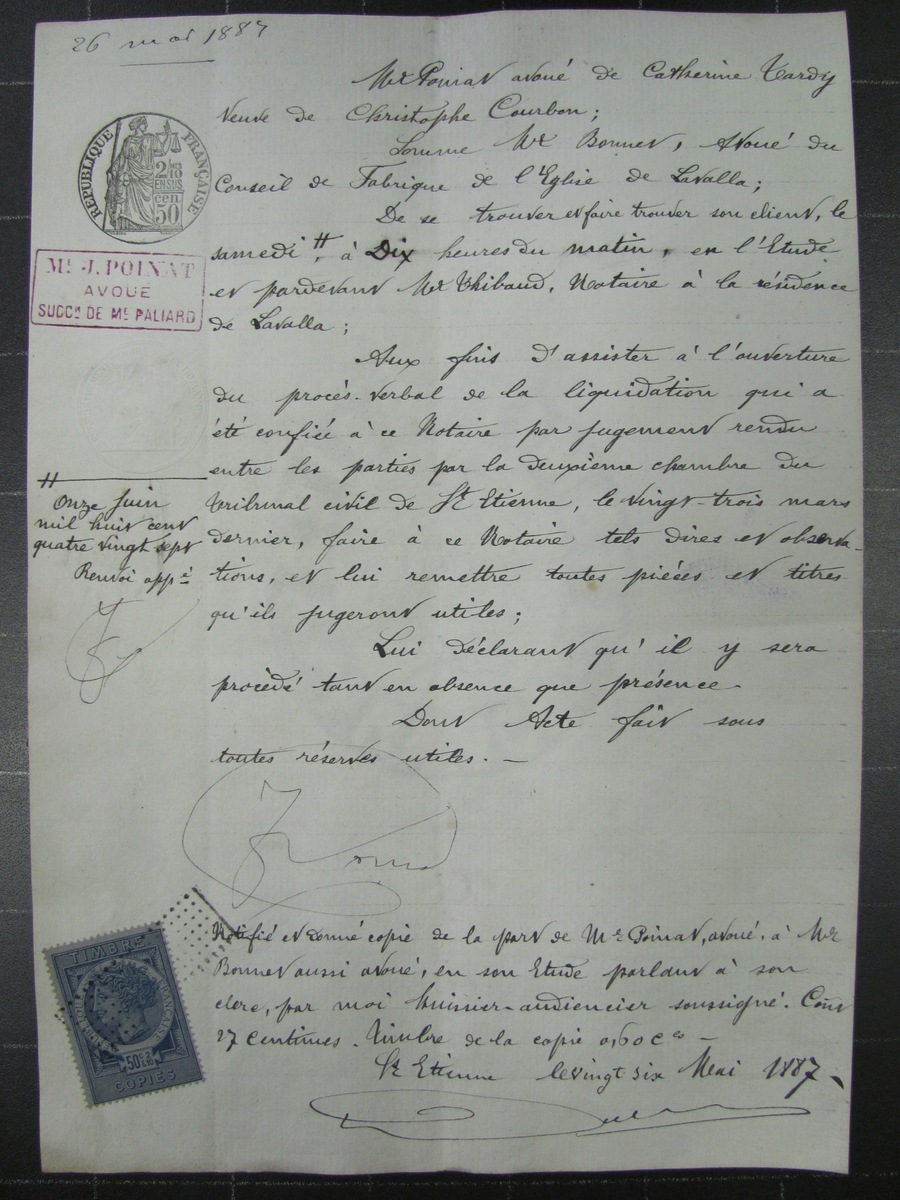 26 mai 1887
Me Poinat avoué de Catherine Tardy
veuve de Christophe Courbon ;
Somme Me Bonnet, Avoué du
Conseil de Fabrique de l'Eglise de Lavalla ;
De se trouver et faire trouver son client, le
samedi #, à Dix heures du matin, en l'Etude
et pardevant Me Thibaud, Notaire à la résidence
de Lavalla ;
Aux fins d'assister à l'ouverture
du procès-verbal de la liquidation qui a
été confiée à ce Notaire par jugement rendu
entre les parties par la deuxième chambre du
tribunal civil de St Etienne, le vingt-trois mars
dernier, faire à ce Notaire tels dires et observa-
tions, et lui remettre toutes pièces et titres
qu'ils jugeront utiles ;
Lui déclarant qu'il y sera
procédé tant en absence que présence.
Dont Acte fait sous
toutes réserves utiles. —
REPUBLIQUE FRANÇAISE
2/10
EN SUS
50 cen
Me J. POINAT
AVOUÉ
SUCCr DE Me PALIARD
#
Onze Juin
mil huit cent
quatre vingt sept
Renvoi appé
Notifié et donné copie de la part de Me Poinat, avoué, à Me
Bonnet aussi avoué, en son Etude parlant à son
clerc, par moi huissier-audiencier soussigné. Cout
27 Centimes. Timbre de la copie 0,60 ces —
St Etienne le vingt six Mai 1887
TIMBRE
50c 2/10
COPIES